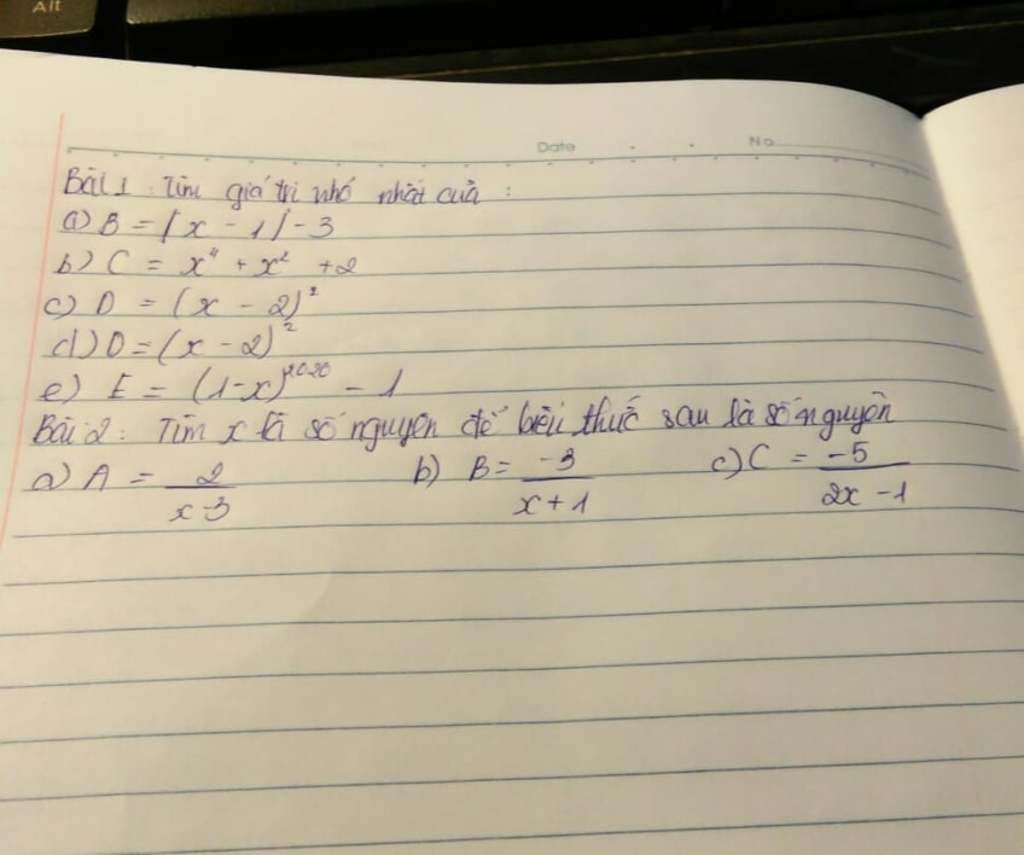 Alt
Date No
Bài 1 : Tìm giá trị nhỏ nhất của :
a) B = |x - 1| - 3
b) C = x⁴ + x² + 2
c) D = (x - 2)²
d) D = (x - 2)²
e) E = (1-x)²⁰²⁰ - 1
Bài 2 : Tìm x là số nguyên để biểu thức sau là số nguyên
a) A = 2 / x-3 b) B = -3 / x+1 c) C = -5 / 2x-1